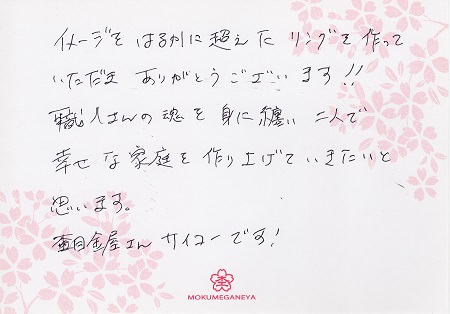 イメージを はるかに超えた リングを作って
いただき ありがとうございます!!
職人さんの魂を身に纏い 二人で
幸せな家庭を作り上げていきたいと
思います。
杢目金屋さん サイコーです!
杢
MOKUMEGANEYA